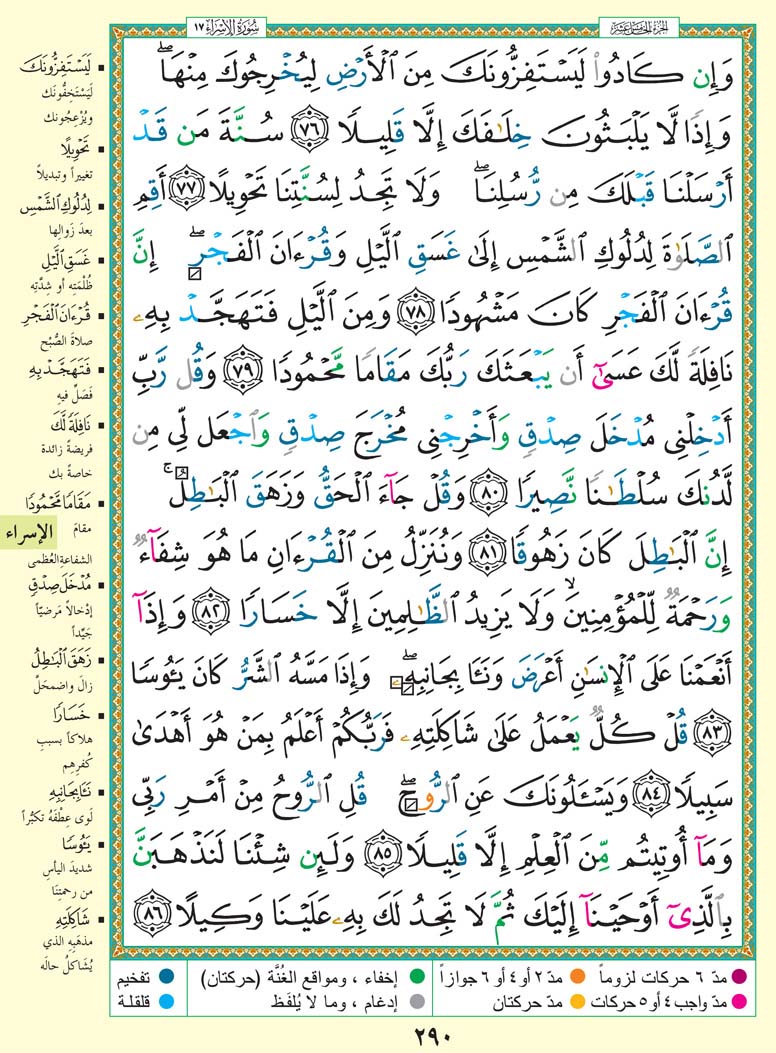 الجزء الخامس عشر
سُورَةُ الإِسْرَاءِ ١٧
وَإِن كَادُوا۟ لَيَسْتَفِزُّونَكَ مِنَ ٱلْأَرْضِ لِيُخْرِجُوكَ مِنْهَا ۖ
وَإِذًا لَّا يَلْبَثُونَ خِلَٰفَكَ إِلَّا قَلِيلًا ﴿٧٦﴾ سُنَّةَ مَن قَدْ
أَرْسَلْنَا قَبْلَكَ مِن رُّسُلِنَا ۖ وَلَا تَجِدُ لِسُنَّتِنَا تَحْوِيلًا ﴿٧٧﴾ أَقِمِ
ٱلصَّلَوٰةَ لِدُلُوكِ ٱلشَّمْسِ إِلَىٰ غَسَقِ ٱلَّيْلِ وَقُرْءَانَ ٱلْفَجْرِ ۖ إِنَّ
قُرْءَانَ ٱلْفَجْرِ كَانَ مَشْهُودًا ﴿٧٨﴾ وَمِنَ ٱلَّيْلِ فَتَهَجَّدْ بِهِۦ
نَافِلَةً لَّكَ عَسَىٰٓ أَن يَبْعَثَكَ رَبُّكَ مَقَامًا مَّحْمُودًا ﴿٧٩﴾ وَقُل رَّبِّ
أَدْخِلْنِى مُدْخَلَ صِدْقٍ وَأَخْرِجْنِى مُخْرَجَ صِدْقٍ وَٱجْعَل لِّى مِن
لَّدُنكَ سُلْطَٰنًا نَّصِيرًا ﴿٨٠﴾ وَقُلْ جَآءَ ٱلْحَقُّ وَزَهَقَ ٱلْبَٰطِلُ ۚ
إِنَّ ٱلْبَٰطِلَ كَانَ زَهُوقًا ﴿٨١﴾ وَنُنَزِّلُ مِنَ ٱلْقُرْءَانِ مَا هُوَ شِفَآءٌ
وَرَحْمَةٌ لِّلْمُؤْمِنِينَ ۙ وَلَا يَزِيدُ ٱلظَّٰلِمِينَ إِلَّا خَسَارًا ﴿٨٢﴾ وَإِذَآ
أَنْعَمْنَا عَلَى ٱلْإِنسَٰنِ أَعْرَضَ وَنَـَٔا بِجَانِبِهِۦ ۖ وَإِذَا مَسَّهُ ٱلشَّرُّ كَانَ يَـُٔوسًا
﴿٨٣﴾ قُلْ كُلٌّ يَعْمَلُ عَلَىٰ شَاكِلَتِهِۦ فَرَبُّكُمْ أَعْلَمُ بِمَنْ هُوَ أَهْدَىٰ
سَبِيلًا ﴿٨٤﴾ وَيَسْـَٔلُونَكَ عَنِ ٱلرُّوحِ ۖ قُلِ ٱلرُّوحُ مِنْ أَمْرِ رَبِّى
وَمَآ أُوتِيتُم مِّنَ ٱلْعِلْمِ إِلَّا قَلِيلًا ﴿٨٥﴾ وَلَئِن شِئْنَا لَنَذْهَبَنَّ
بِٱلَّذِىٓ أَوْحَيْنَآ إِلَيْكَ ثُمَّ لَا تَجِدُ لَكَ بِهِۦ عَلَيْنَا وَكِيلًا ﴿٨٦﴾
▪ لَيَسْتَفِزُّونَكَ
لَيَسْتَخِفُّونَك
ويُزْعِجُونك
▪ تَحْوِيلًا
تغييراً وتبديلاً
▪ لِدُلُوكِ ٱلشَّمْسِ
بعدَ زَوالِها
▪ غَسَقِ ٱلَّيْلِ
ظُلمَتِه أو شِدَّتِه
▪ قُرْءَانَ ٱلْفَجْرِ
صلاةَ الصُّبْح
▪ فَتَهَجَّدْ بِهِۦ
فَصَلِّ فيهِ
▪ نَافِلَةً لَّكَ
فريضةً زائدة
خاصةً بك
▪ مَقَامًا مَّحْمُودًا
مقامَ
الشفاعة العُظمى
الإسراء
▪ مُدْخَلَ صِدْقٍ
إدْخالاً مَرضيّاً
جَيِّداً
▪ زَهَقَ ٱلْبَٰطِلُ
زالَ واضمحَلَّ
▪ خَسَارًا
هلاكاً بسببِ
كُفرِهِم
▪ نَـَٔا بِجَانِبِهِۦ
لَوى عِطْفَهُ تكبُّراً
▪ يَـُٔوسًا
شديدَ اليأسِ
من رحمتِنَا
▪ شَاكِلَتِهِۦ
مذهَبِه الذي
يُشَاكلُ حالَه
مدّ ٦ حركات لزوماً
مدّ ٢ أو ٤ أو ٦ جوازاً
إخفاء ، ومواقع الغُنَّة (حركتان)
تفخيم
مدّ واجب ٤ أو ٥ حركات
مدّ حركتان
إدغام ، وما لا يُلفَظ
قلقلة
٢٩٠